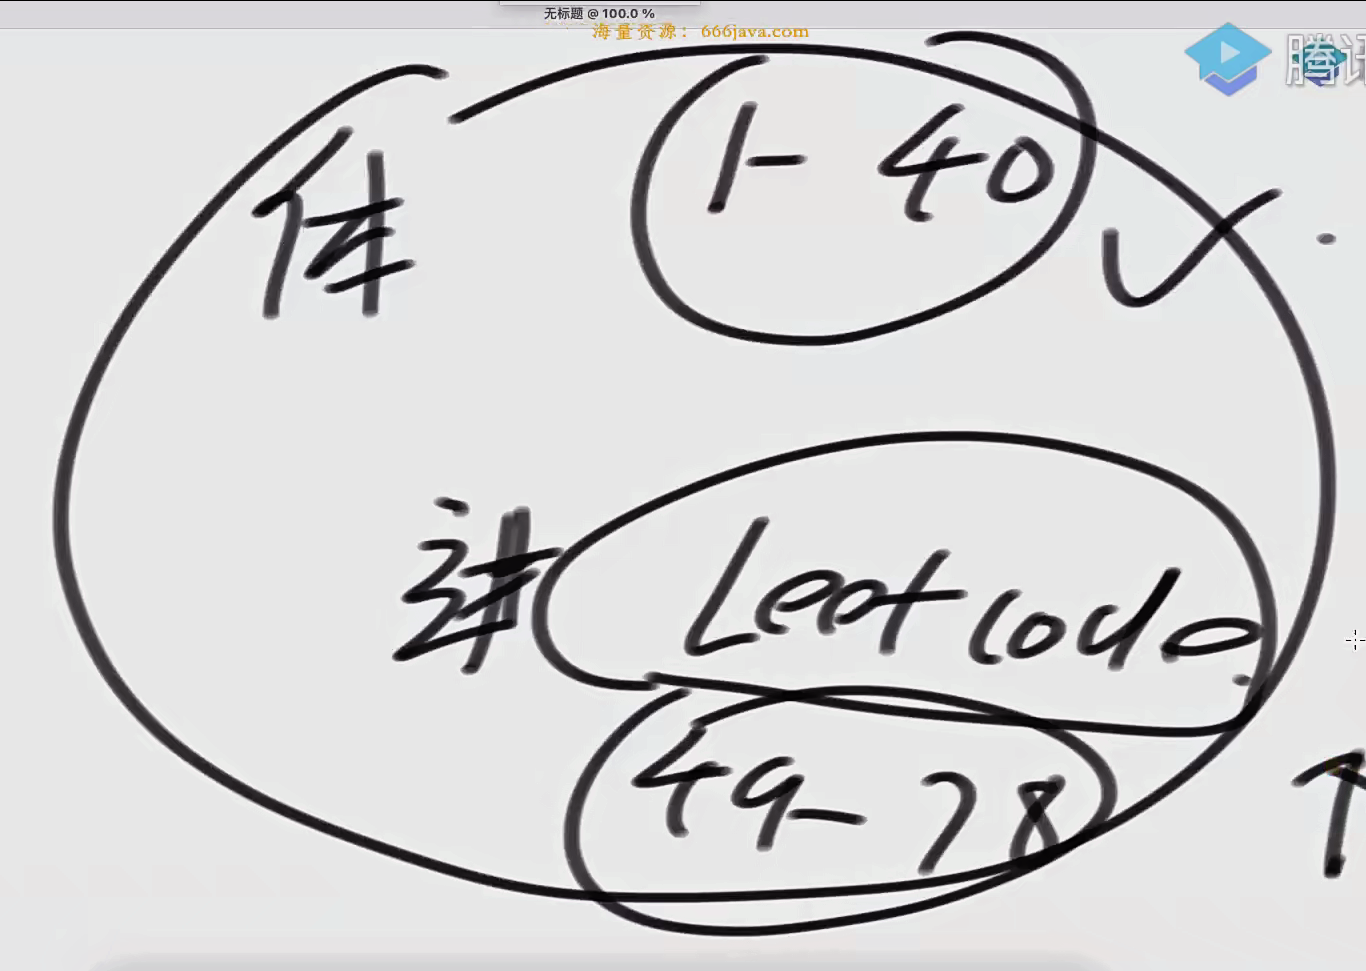 无标题 @ 100.0 %
海量资源：666java.com
腾讯
体 1- 40
Leetcode
49-78